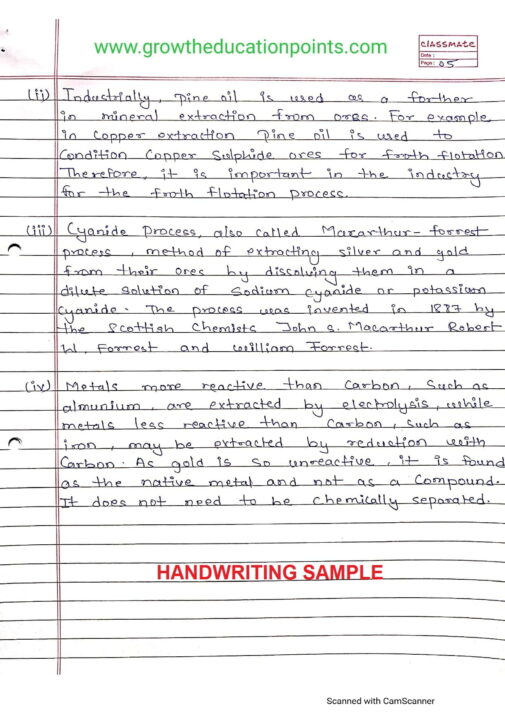 www.growtheducationpoints.com
classmate
Date :
Page : 05
(ii) Industrially, Pine oil is used as a forther
in mineral extraction from ores. For example,
in Copper extraction Pine oil is used to
Condition Copper Sulphide ores for froth flotation
Therefore, it is important in the industry
for the froth flotation process.
(iii) Cyanide Process, also called Macarthur-forrest
process, method of extracting silver and gold
from their ores by dissolving them in a
dilute solution of Sodium cyanide or potassium
Cyanide. The process was invented in 1887 by
the Scottish Chemists John S. Macarthur Robert
W. Forrest and william Forrest.
(iv) Metals more reactive than Carbon, Such as
almunium, are extracted by electrolysis, while
metals less reactive than Carbon, such as
iron, may be extracted by reduction with
Carbon. As gold is so unreactive, it is found
as the native metal and not as a Compound.
It does not need to be chemically separated.
HANDWRITING SAMPLE
Scanned with CamScanner